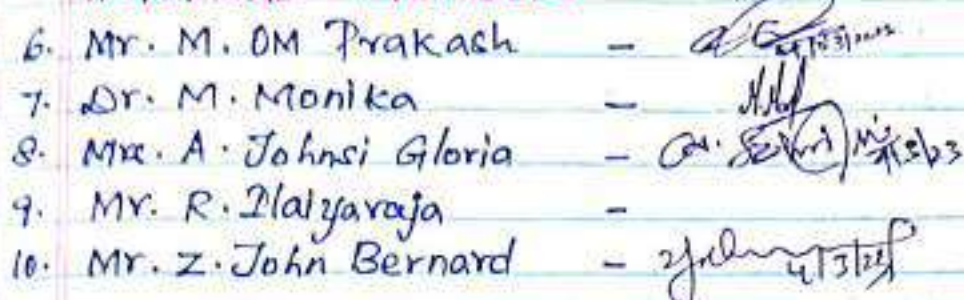 6. Mr. M. OM Prakash -
7. Dr. M. Monika -
8. Mrs. A. Johnsi Gloria -
9. Mr. R. Ilaiyaraja -
10. Mr. Z. John Bernard - 4/3/23